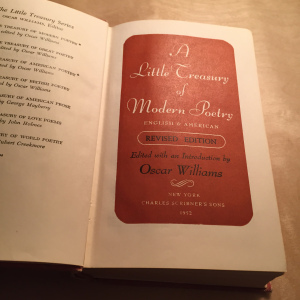 The Little Treasury Series
OSCAR WILLIAMS, Editor
TREASURY OF MODERN POETRY
edited by Oscar Williams
TREASURY OF GREAT POETRY
edited by Oscar Williams
TREASURY OF AMERICAN POETRY
edited by Oscar Williams
TREASURY OF BRITISH POETRY
edited by Oscar Williams
TREASURY OF AMERICAN PROSE
by George Mayberry
TREASURY OF LOVE POEMS
by John Holmes
TREASURY OF WORLD POETRY
Hubert Creekmore
A
Little Treasury
of
Modern Poetry
ENGLISH & AMERICAN
REVISED EDITION
Edited with an Introduction by
Oscar Williams
NEW YORK
CHARLES SCRIBNER'S SONS
1952